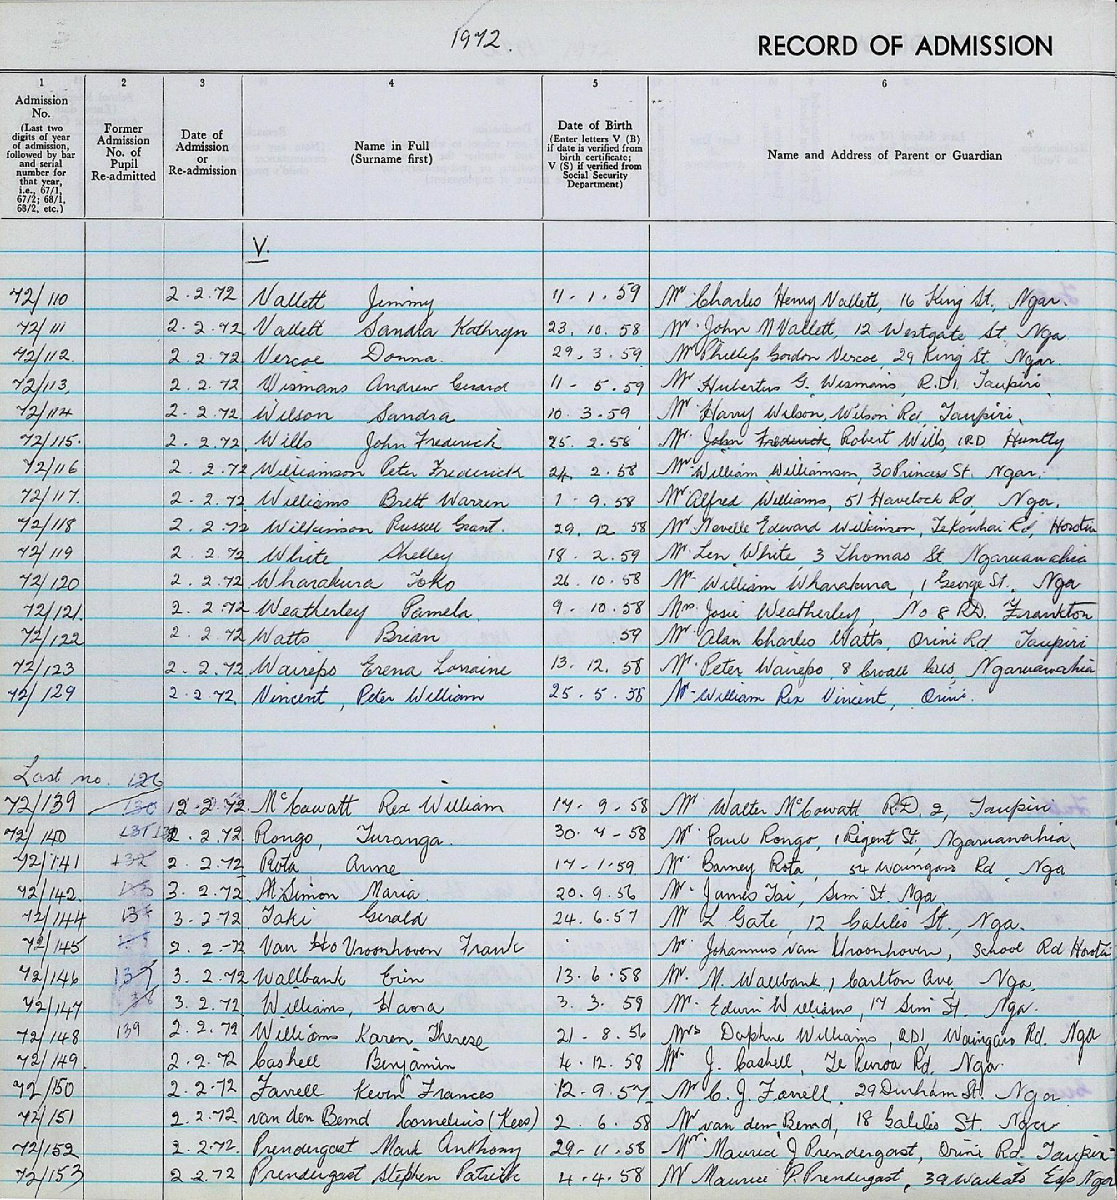 1972.
RECORD OF ADMISSION
1 2 3 4 5 6
Admission No. (Last two digits of year of admission, followed by bar and serial number for that year, i.e., 67/1, 67/2; 68/1, 68/2, etc.)
Former Admission No. of Pupil Re-admitted
Date of Admission or Re-admission
Name in Full (Surname first)
Date of Birth (Enter letters V (B) if date is verified from birth certificate; V (S) if verified from Social Security Department)
Name and Address of Parent or Guardian
V.
72/110 2.2.72 Vallett Jimmy 11.1.59 Mr Charles Henry Vallett, 16 King St. Ngar.
72/111 2.2.72 Vallett Sandra Kathryn 23.10.58 Mr John N Vallett, 12 Westgate St. Nga
72/112. 2.2.72 Vercoe Donna. 29.3.59 Mr Phillip Gordon Vercoe, 29 King St. Ngar.
72/113, 2.2.72 Wismans Andrew Gerard 11-5.59 Mr Hubertus G. Wismans, R.D1, Taupiri
72/114 2.2.72 Wilson Sandra 10.3.59 Mr Harry Wilson, Wilson Rd, Taupiri.
72/115. 2.2.72 Wills John Frederick 25.2.58 Mr. John Frederick, Robert Wills, 1RD Huntly
72/116 2.2.72 Williamson Peter Frederick 24.2.58 Mr William Williamson, 30 Princess St. Ngar.
72/117. 2.2.72 Williams Brett Warren 1.9.58 Mr Alfred Williams, 51 Havelock Rd, Nga.
72/118 2.2.72 Wilkinson Russell Grant. 29.12.58 Mr Nevelle Edward Wilkinson, Te Kowhai Rd, Horotiu
72/119 2.2.72 White Shelley 18.2.59 Mr Len White 3 Thomas St Ngaruawahia
72/120 2.2.72 Wharakura Toko 26.10.58 Mr William Wharakura, 1 George St. Nga
72/121. 2.2.72 Weatherley Pamela. 9-10.58 Mrs. Josie Weatherley, No 8 RD. Frankton
72/122 2.2.72 Watts Brian 59 Mr Alan Charles Watts, Orini Rd Taupiri
72/123 2-2.72 Wairepo Erena Lorraine 13.12.58 Mr. Peter Wairepo, 8 Cres, Ngaruawahia
72/129 2.2.72 Vincent, Peter William 25.5.58 Mr William Rex Vincent, Orini.
Last no. 126
72/139 12-2.72 McCowatt Rex William 17-9-58 Mr Walter McCowatt R.D. 2, Taupiri
72/140 2.2.72 Rongo, Turanga. 30.4-58 Mr Paul Rongo, 1 Regent St, Ngaruawahia
72/141 132 2.2.72 Rota Anne 17-1.59 Mr Barney Rota, 54 Waingaro Rd, Nga
72/142. 3.2.72 McSimon Maria 20.9.56 Mr James Tai, Sim St. Nga
72/144 3.2.72 Taki Gerald 24.6.57 Mr L Gate, 12 Galileo St., Nga.
72/145 2.2-72 Van Vroonhoven Frank Mr Johannus van Vroonhoven, School Rd Horotiu
72/146 137 3.2.72 Wallbank Erin 13.6.58 Mr. N. Wallbank, Carlton Ave, Nga.
72/147 38 3.2.72 Williams, Haora 3.3.59 Mr Edwin Williams, 17 Sim St. Nga.
72/148 139 2.2.72 Williams Karen Therese 21-8.56 Mrs Daphne Williams, RD1, Waingaro Rd. Nga
72/149. 2.2.72 Cashell Benjamin 4.12.58 Mr J. Cashell, Te Puroa Rd. Nga.
72/150 2.2.72 Farrell Kevin Frances 12-9.57 Mr C. J. Farrell, 29 Durham St. Nga
72/151 2.2.72 van den Bemd Cornelius (Kees) 2.6.58 Mr van den Bemd, 18 Galileo St. Ngar
72/152 2.2.72. Prendergast Mark Anthony 29-11.58 Mr Maurice J Prendergast, Orini Rd. Taupiri
72/153 2.2.72 Prendergast Stephen Patrick 4.4.58 Mr Maurice P. Prendergast, 39 Waikato Esp Ngar